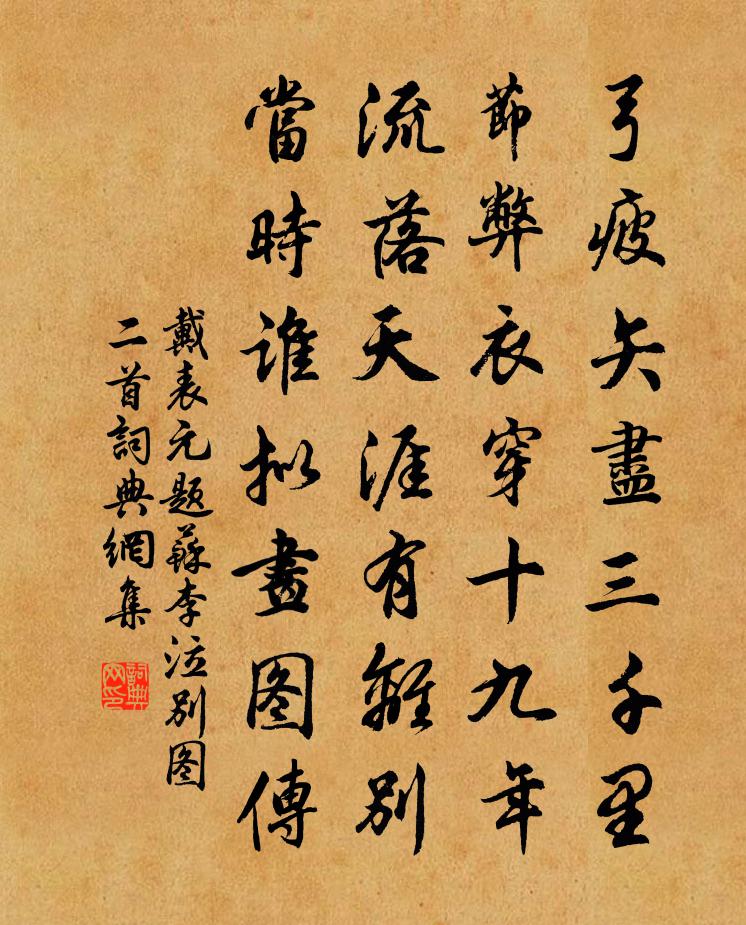 弓疲矢盡三千里
節弊衣穿十九年
流落天涯有離別
當時誰拟畫图傳
戴表元题蘇李泣別图
二首詞典網集
詞典网印